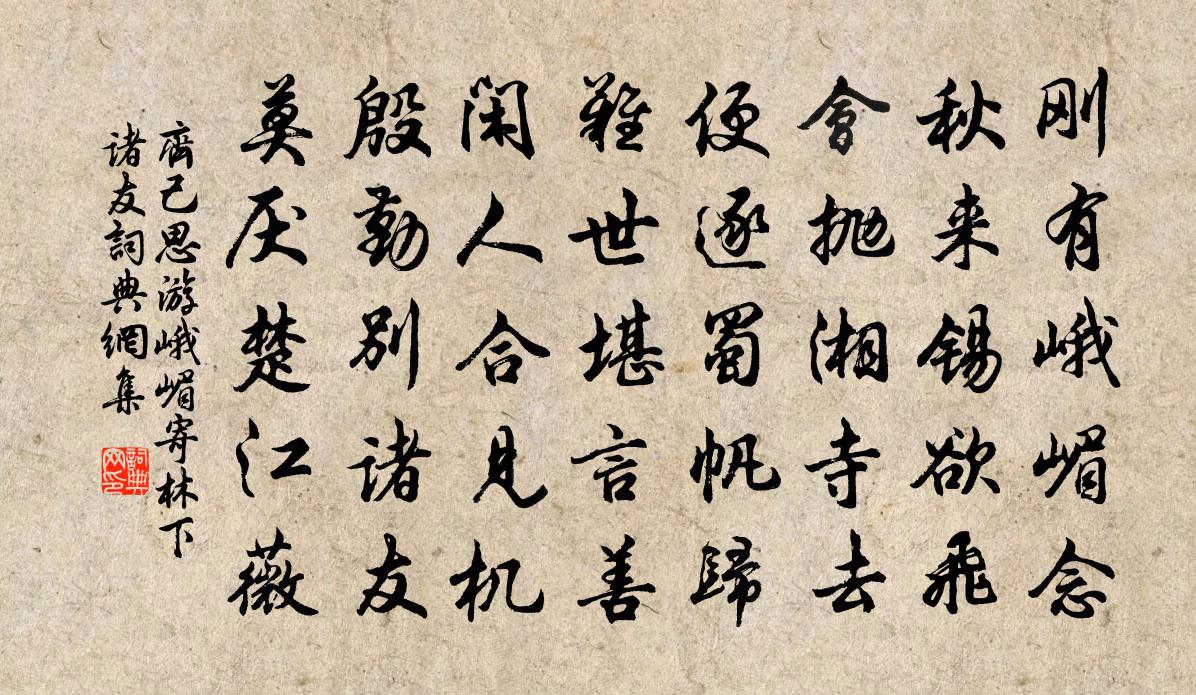 刚有峨嵋念
秋来锡欲飛
會抛湘寺去
便逐蜀帆歸
難世堪言善
闲人合見机
殷勤别诸友
莫厌楚江薇
齊己思游峨嵋寄林下
诸友詞典網集
詞典
网印